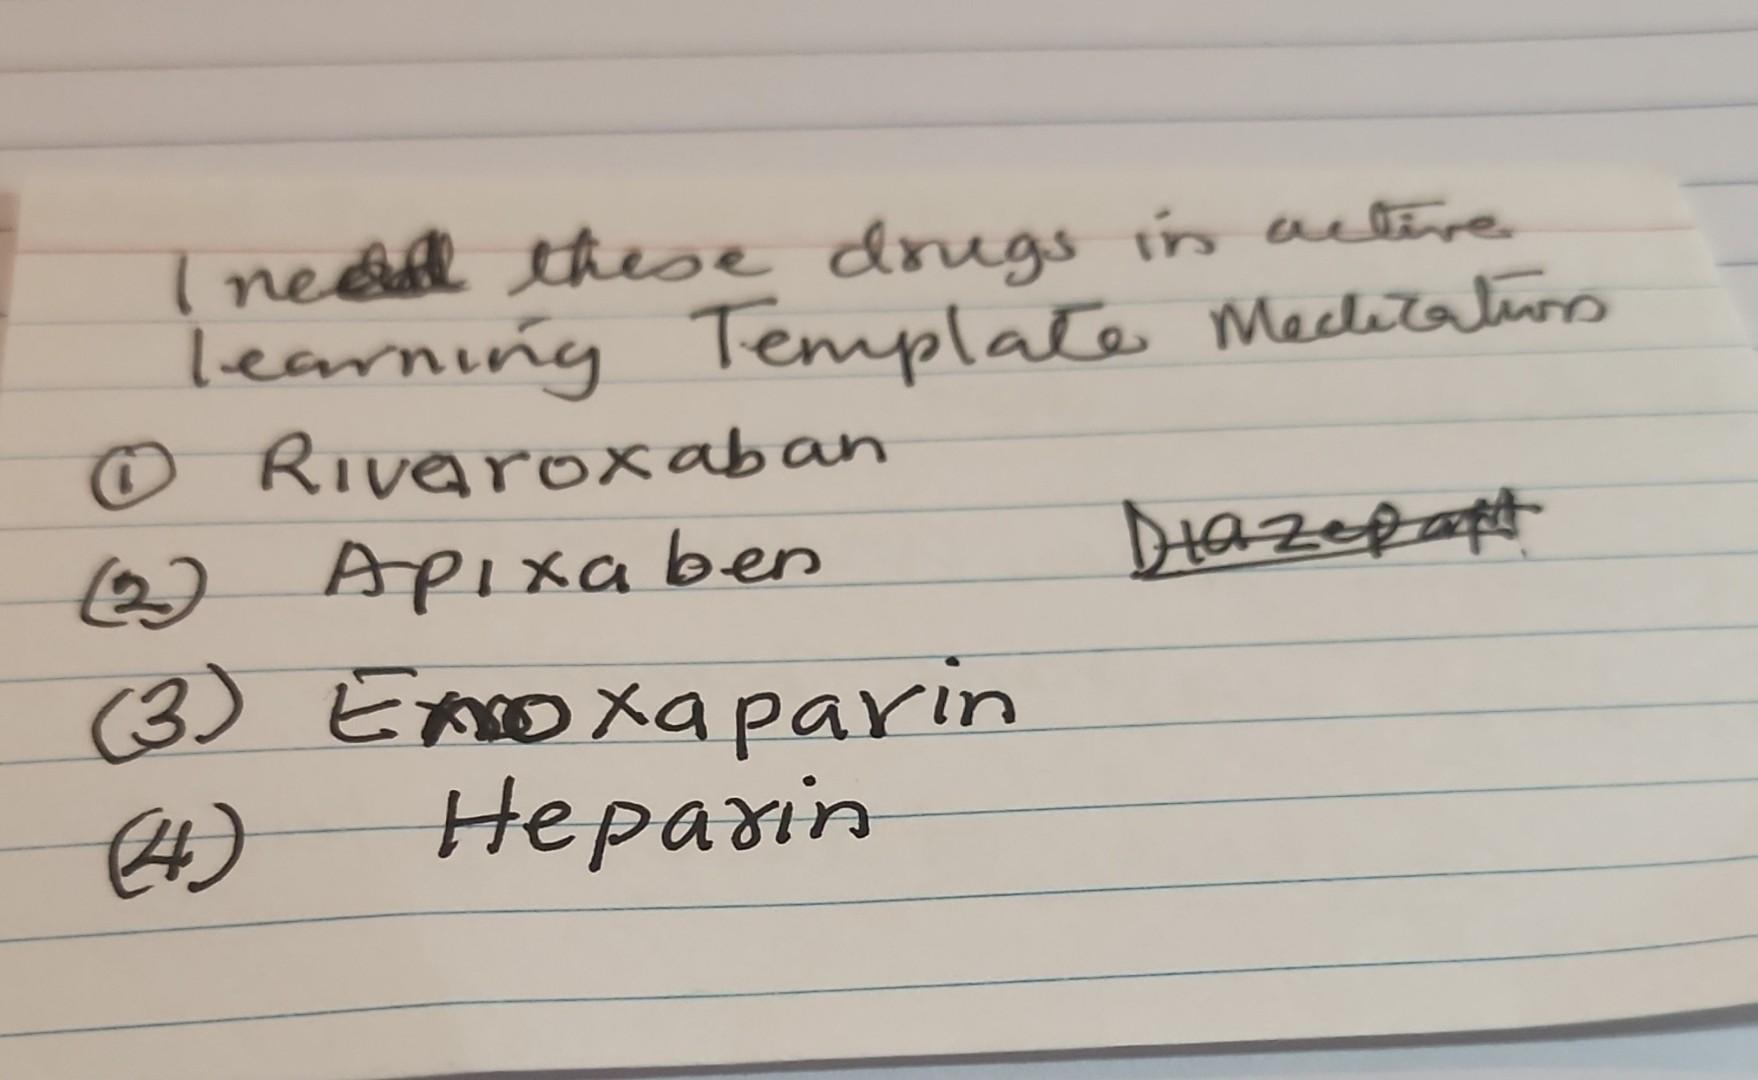 I need these drugs in active
learning Template Medications
① Rivaroxaban
(2) Apixaben
Diazepam
(3) Enoxaparin
(4) Heparin